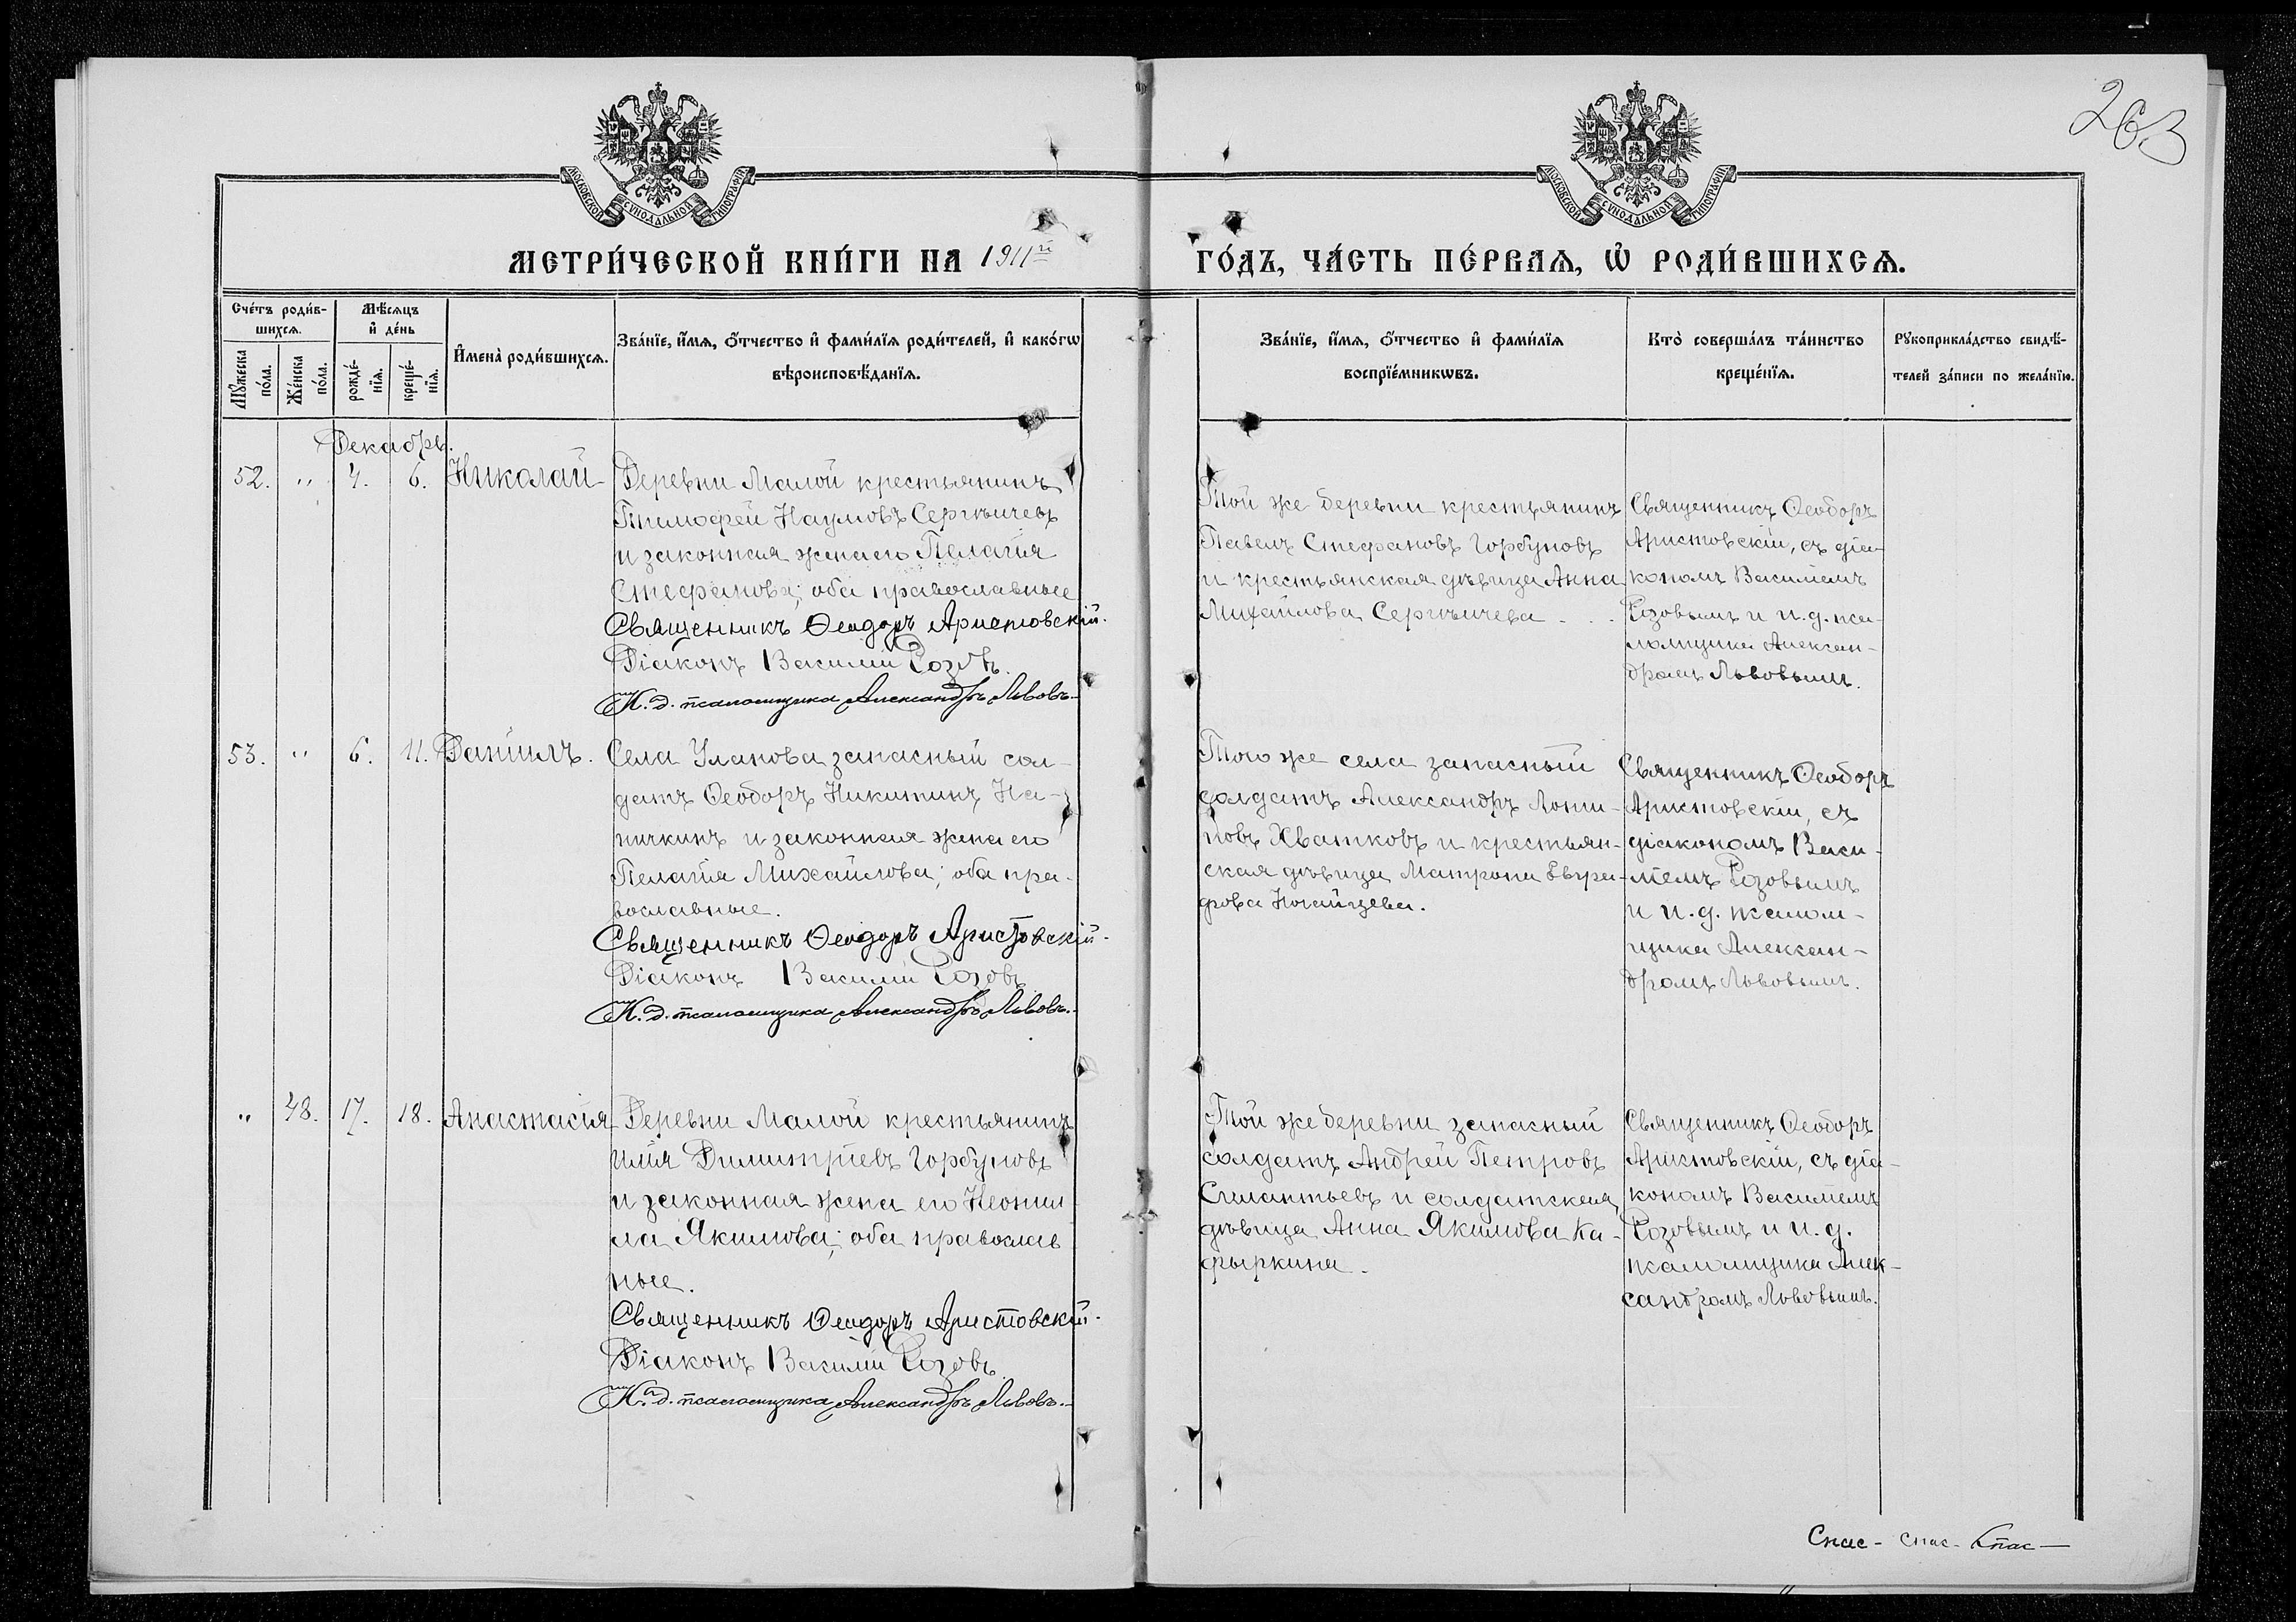 263
МОСКОВСКОЙ СѴНОДАЛЬНОЙ ТИПОГРАФІИ
МОСКОВСКОЙ СѴНОДАЛЬНОЙ ТИПОГРАФІИ
МЕТРИ́ЧЕСКОЙ КНИ́ГИ НА 1911й
ГО́ДЪ, ЧА́СТЬ ПЕ́РВАЯ, Ѡ҆ РОДИ́ВШИХСЯ.
Сче́тъ роди́в-
шихсѧ.
Мꙋ́жеска
по́ла.
Же́нска
по́ла.
Мѣ́сѧцъ
и҆ де́нь
рожде́-
нїѧ.
креще́-
нїѧ.
И҆мена̀ роди́вшихсѧ.
Зва́нїе, и҆́мѧ, ѻ҆́тчество и҆ фами́лїѧ роди́телей, и҆ како́гѡ
вѣроисповѣ́данїѧ.
Зва́нїе, и҆́мѧ, ѻ҆́тчество и҆ фами́лїѧ
воспрїе́мникѡвъ.
Кто̀ соверша́лъ та́инство
креще́нїѧ.
Рꙋкоприкла́дство свидѣ́-
телей за́писи по жела́нїю.
Декабрь.
52. " 4. 6. Николай
Деревни Малой крестьянинъ
Тимофей Наумовъ Сергѣичевъ
и законная жена его Пелагія
Стефанова; оба православные
Священникъ Ѳеодоръ Аристовскій.
Діаконъ Василій Розовъ.
И. д. псаломщика Александръ Львовъ.
Той же деревни крестьянинъ
Павелъ Стефановъ Горбуновъ
и крестьянская дѣвица Анна
Михайлова Сергѣичева . . .
Священникъ Ѳеодоръ
Аристовскій, съ діа-
кономъ Василіемъ
Розовымъ и и. д. пса-
ломщика Алексан-
дромъ Львовымъ.
53. " 6. 11. Даніилъ.
Села Уланова запасный сол-
датъ Ѳеодоръ Никитинъ На-
ничкинъ и законная жена его
Пелагія Михайлова; оба пра-
вославные.
Священникъ Ѳеодоръ Аристовскій.
Діаконъ Василій Розовъ
И. д. псаломщика Александръ Львовъ.
Того же села запасный
солдатъ Александръ Логи-
новъ Хватковъ и крестьян-
ская дѣвица Матрона Евгра-
фова Ногайцева.
Священникъ Ѳеодоръ
Аристовскій, съ
діакономъ Васи-
ліемъ Розовымъ
и и. д. псалом-
щика Алексан-
дромъ Львовымъ.
" 48. 17. 18. Анастасія
Деревни Малой крестьянинъ
Илія Димитріевъ Горбуновъ
и законная жена его Неонил
ла Якимова; оба православ
ные.
Священникъ Ѳеодоръ Аристовскій.
Діаконъ Василій Розовъ
И. д. псаломщика Александръ Львовъ.
Той же деревни запасный
солдатъ Андрей Петровъ
Силантьевъ и солдатская
дѣвица Анна Якимова Ка-
фыркина.
Священникъ Ѳеодоръ
Аристовскій, съ діа-
кономъ Василіемъ
Розовымъ и и. д.
псаломщика Алек-
сандромъ Львовымъ.
Спас- спас- Спас-